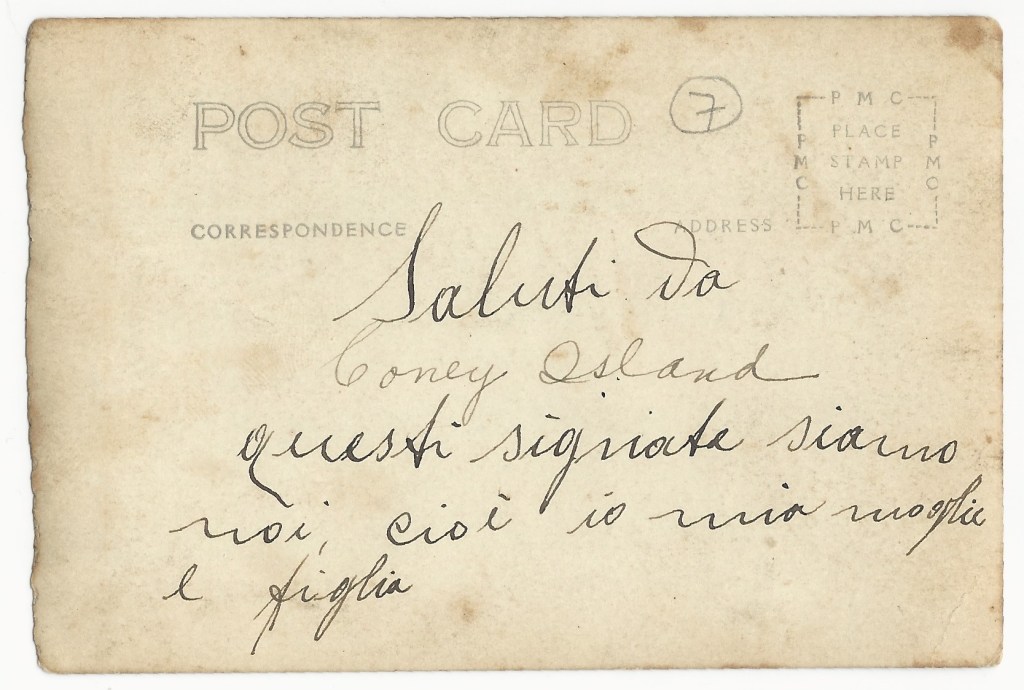 POST CARD
7
P M C
PLACE
STAMP
HERE
P M C
P M C
P M C
CORRESPONDENCE
ADDRESS
Saluti da
Coney Island
questi signate siamo
noi, cioè io mia moglie
e figlia